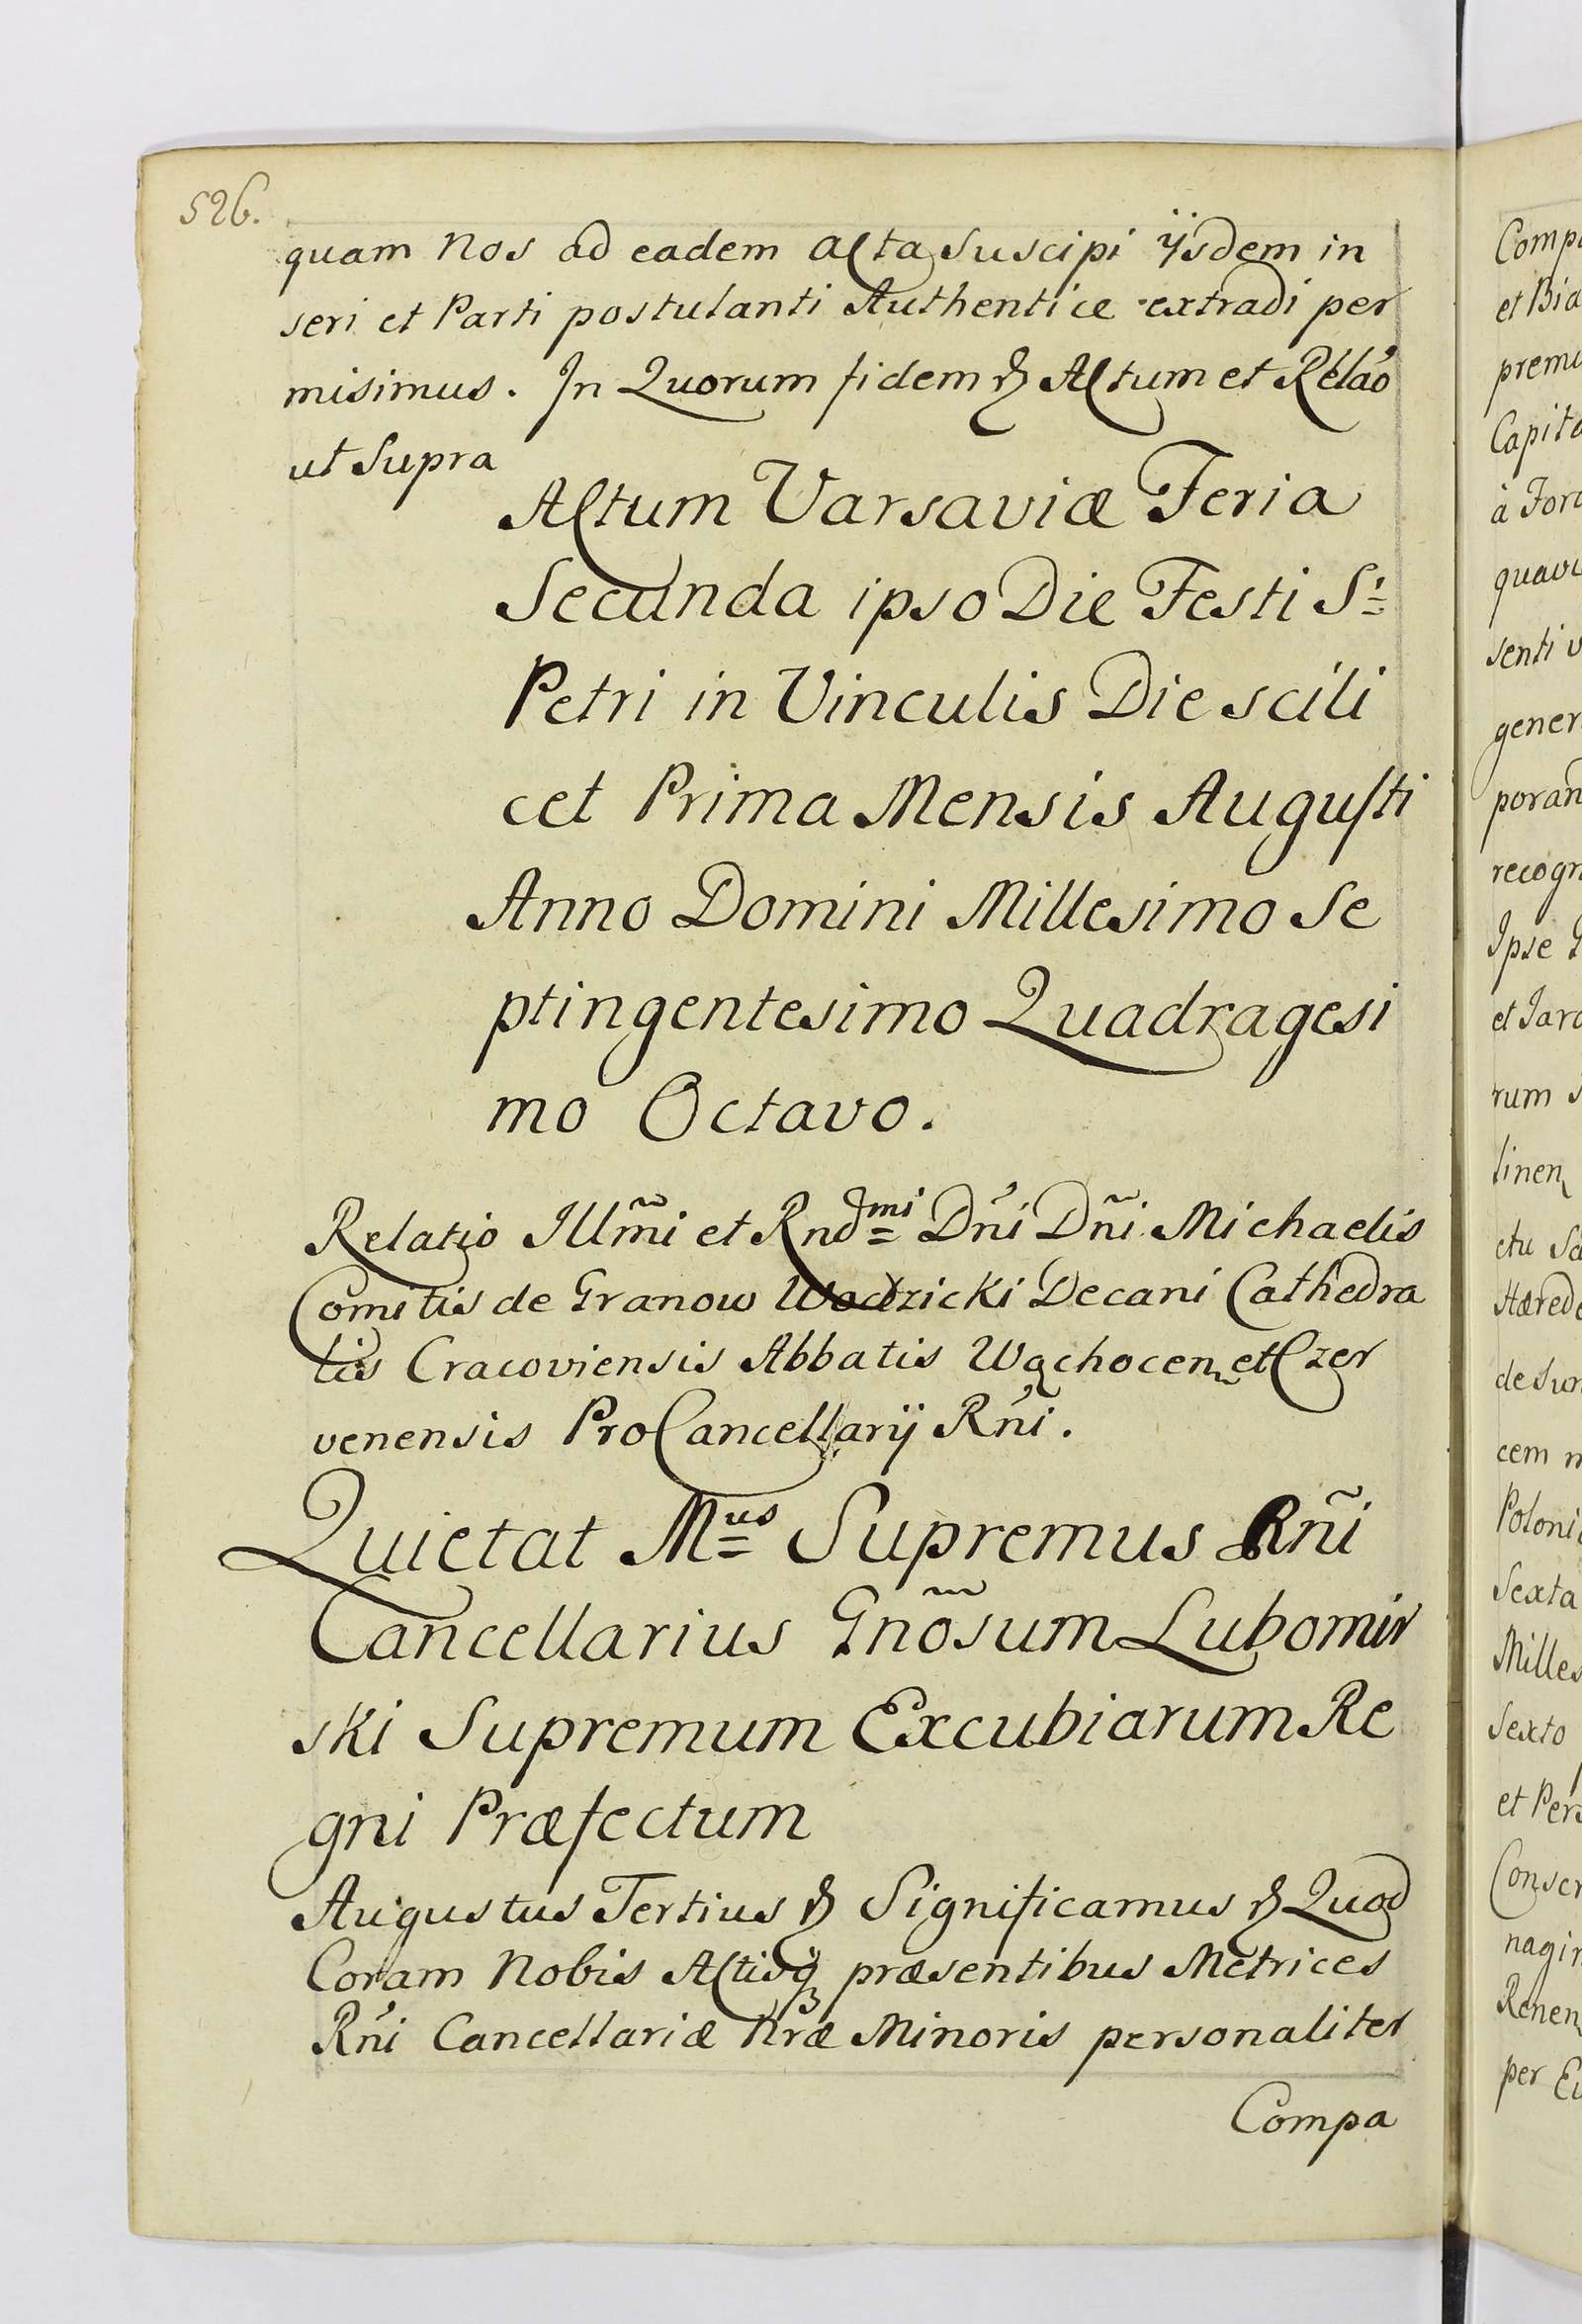 526.
quam Nos ad eadem Acta Suscipi ijsdem in
seri et Parti postulanti Authentice extradi per
misimus. In Quorum fidem &c Actum et Relaõ
ut Supra
Actum Varsaviæ Feria
Secunda ipso Die Festi Sⁱ
Petri in Vinculis Die scili
cet Prima Mensis Augusti
Anno Domini Millesimo Se
ptingentesimo Quadragesi
mo Octavo.
Relatio Illm̃i et Rndᵐⁱ Dñi Dñi Michaelis
Comitis de Granow Wodzicki Decani Cathedra
lis Cracoviensis Abbatis Wąchocen et Czer
venensis ProCancellarij Rñi.
Quietat Mᵘˢ Supremus Rñi
Cancellarius Gnõsum Lubomir
ski Supremum Excubiarum Re
gni Præfectum
Augustus Tertius &c Significamus &c Quod
Coram Nobis Actisq præsentibus Metrices
Rñi Cancellariæ Nræ Minoris personaliter
Compa
Comp
et Bia
prem
Capit
à For
quav
senti
gener
poran
recogn
Ipse
et Jaro
rum
linen
ctu
Hærede
de
cem
Poloni
Sexta
Milles
Sexto
et Pers
Conser
nagin
Renen
per